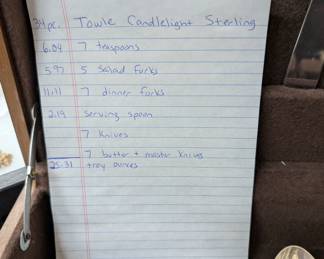 34 pc. Towle Candlelight Sterling
6.04 7 teaspoons
5.97 5 Salad Forks
11.11 7 dinner forks
2.19 serving spoon
7 knives
7 butter + master knives
25.31 troy ounces